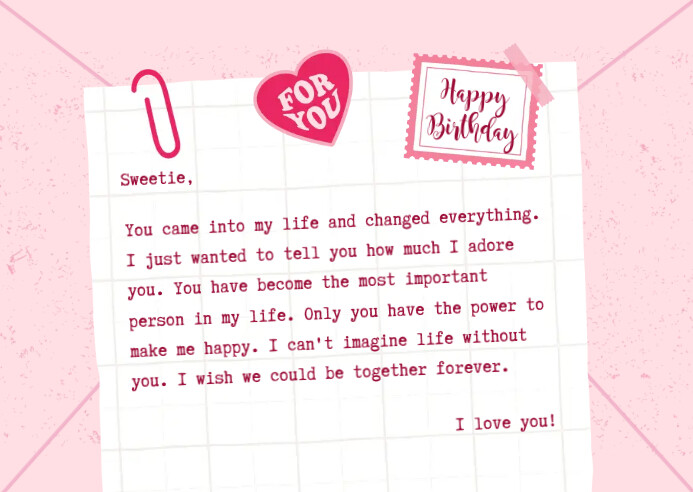 FOR
YOU
Happy
Birthday
Sweetie,
You came into my life and changed everything.
I just wanted to tell you how much I adore
you. You have become the most important
person in my life. Only you have the power to
make me happy. I can't imagine life without
you. I wish we could be together forever.
I love you!